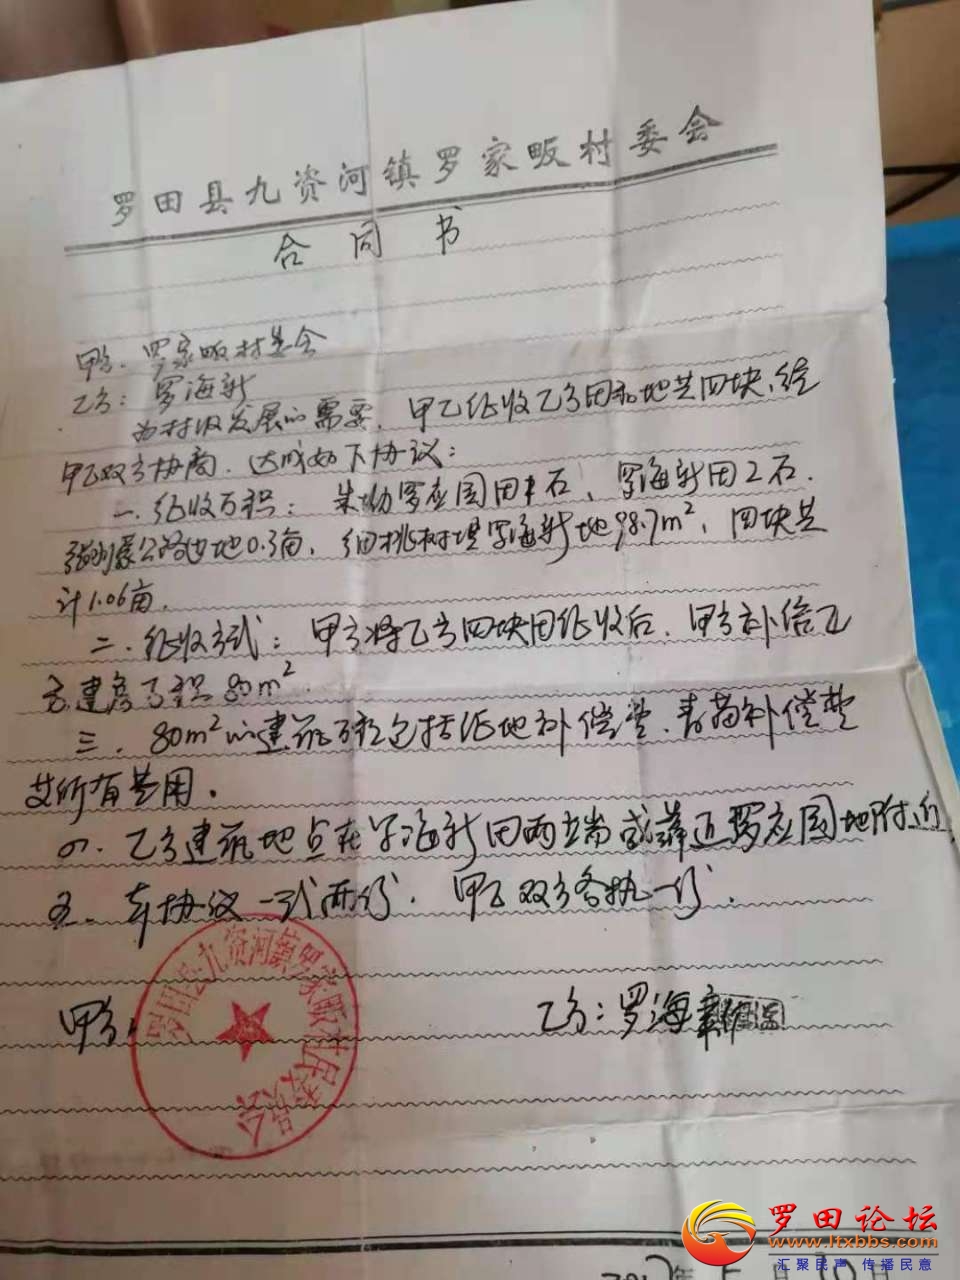 罗田县九资河镇罗家畈村委会
合同书
甲方：罗家畈村委会
乙方：罗海新
为村级发展的需要，甲乙征收乙方田和地共四块，经
甲乙双方协商，达成如下协议：
一、征收面积：罗应国田1石、罗海新田2石．
公路边地0.3亩、细桃树垱罗海新地98.7m²，四块共
计1.06亩．
二．征收方式：甲方将乙方四块田征收后．甲方补偿乙
方建房面积80m²．
三．80m²的建筑面积包括征地补偿费．青苗补偿费
及所有费用．
四．乙方建筑地点在罗海新田两立端或靠近罗应国地附近
五．本协议一式两份．甲乙双方各执一份．
甲方：
罗田县九资河镇罗家畈村民委员会
乙方：罗海新
年5月10日
罗田论坛
www.ltxbbs.com
汇聚民声 传播民意